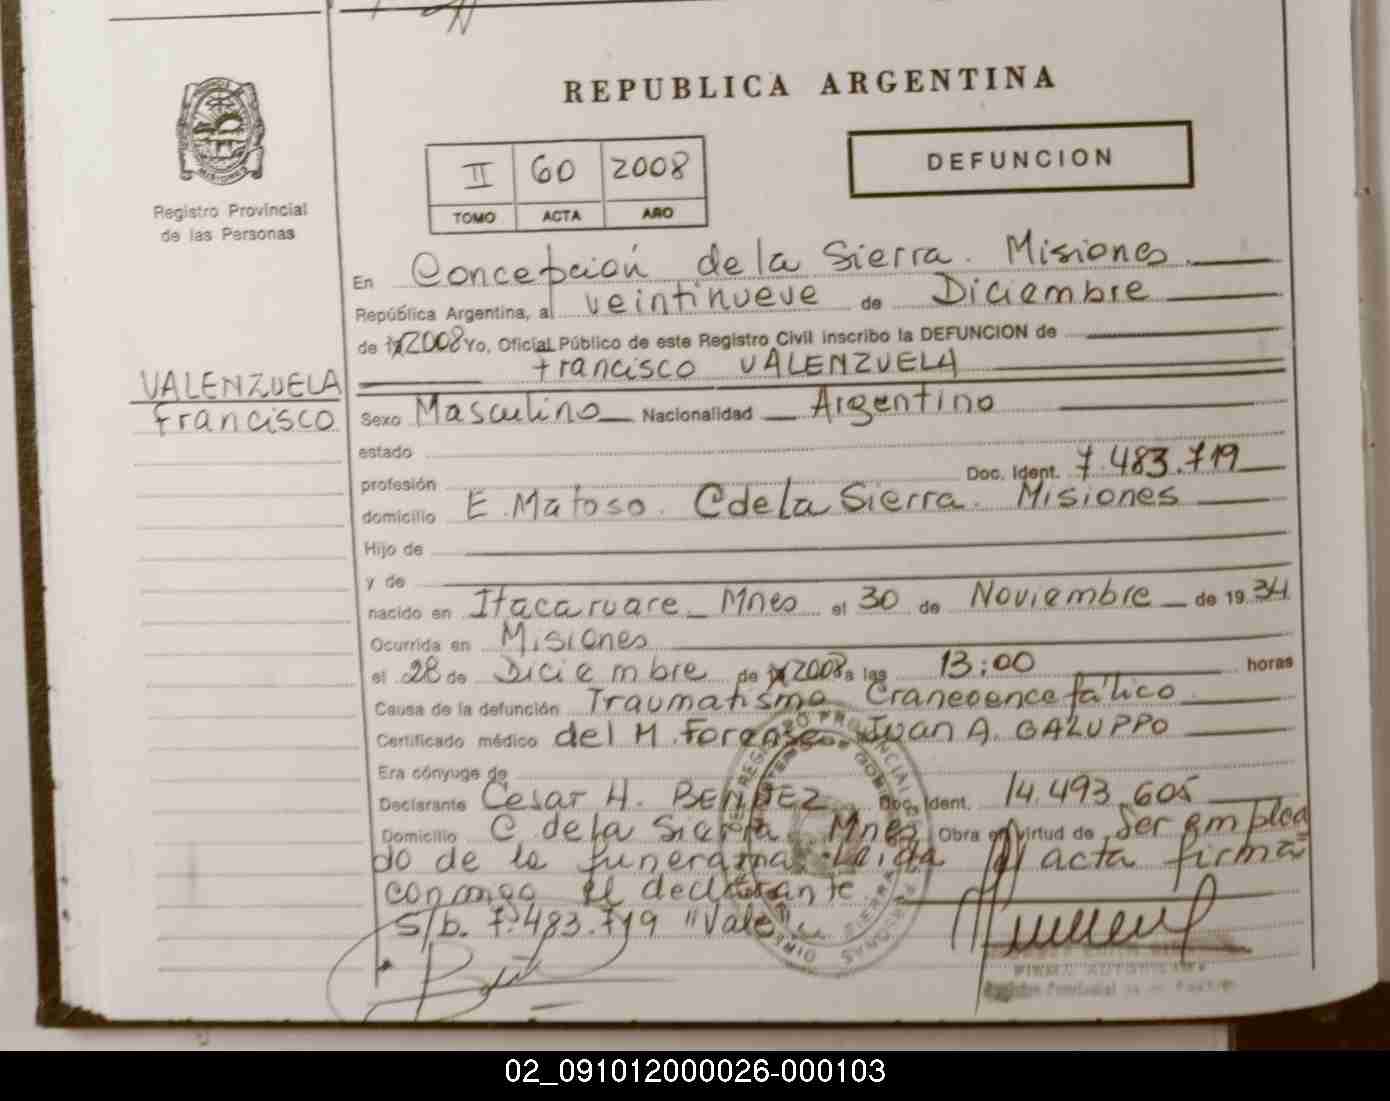 REPUBLICA ARGENTINA
MISIONES
Registro Provincial
de las Personas
II 60 2008
TOMO ACTA AÑO
DEFUNCION
En Concepción de la Sierra. Misiones
República Argentina, al veintinueve de Diciembre
de 2008 Yo, Oficial Público de este Registro Civil inscribo la DEFUNCION de
Francisco VALENZUELA
VALENZUELA
Francisco
Sexo Masculino Nacionalidad Argentino
estado
profesión Doc. Ident. 7.483.719
domicilio E. Matoso. C de la Sierra. Misiones
Hijo de
y de
nacido en Itacaruare Mnes el 30 de Noviembre de 1934
Ocurrida en Misiones
el 28 de Diciembre de 2008 a las 13:00 horas
Causa de la defunción Traumatismo Craneoencefálico
Certificado médico del M. Forense Juan A. GALUPPO
Era cónyuge de
Declarante Cesar H. Doc. Ident. 14.493.605
Domicilio C. de la Sierra Mnes Obra en virtud de Ser emplea
do de la funeraria. Leida el acta firma
conmigo el declarante
S/b. 7.483.719 "Vale
FIRMA AUTORIZADA
Registro Provincial de
02_091012000026-000103